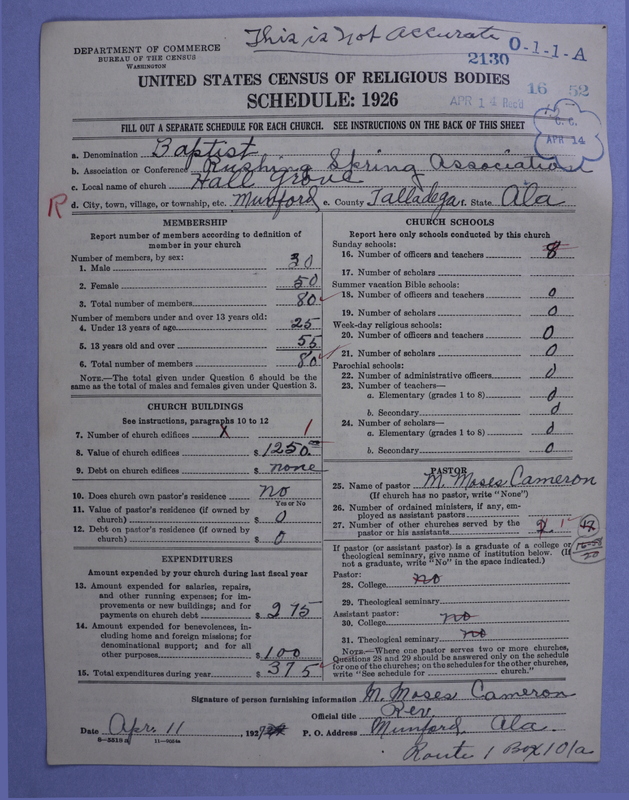 This is not accurate
DEPARTMENT OF COMMERCE
BUREAU OF THE CENSUS
WASHINGTON
2130 O-1-1-A
UNITED STATES CENSUS OF RELIGIOUS BODIES
16 52
SCHEDULE: 1926
APR 14 Rec'd
C. C.
APR 14
FILL OUT A SEPARATE SCHEDULE FOR EACH CHURCH. SEE INSTRUCTIONS ON THE BACK OF THIS SHEET
a. Denomination Baptist
b. Association or Conference Rushing Spring Association
c. Local name of church Hall Grove
R d. City, town, village, or township, etc. Munford e. County Talladega f. State Ala
MEMBERSHIP
Report number of members according to definition of
member in your church
Number of members, by sex:
1. Male 30
2. Female 50
3. Total number of members 80
Number of members under and over 13 years old:
4. Under 13 years of age 25
5. 13 years old and over 55
6. Total number of members 80
NOTE.—The total given under Question 6 should be the
same as the total of males and females given under Question 3.
CHURCH BUILDINGS
See instructions, paragraphs 10 to 12
7. Number of church edifices X 1
8. Value of church edifices $ 1250.00
9. Debt on church edifices $ none
10. Does church own pastor's residence no
Yes or No
11. Value of pastor's residence (if owned by
church) $ 0
12. Debt on pastor's residence (if owned by
church) $ 0
EXPENDITURES
Amount expended by your church during last fiscal year
13. Amount expended for salaries, repairs,
and other running expenses; for im-
provements or new buildings; and for
payments on church debt $ 275
14. Amount expended for benevolences, in-
cluding home and foreign missions; for
denominational support; and for all
other purposes $ 100
15. Total expenditures during year $ 375
CHURCH SCHOOLS
Report here only schools conducted by this church
Sunday schools:
16. Number of officers and teachers 8
17. Number of scholars
Summer vacation Bible schools:
18. Number of officers and teachers 0
19. Number of scholars 0
Week-day religious schools:
20. Number of officers and teachers 0
21. Number of scholars 0
Parochial schools:
22. Number of administrative officers 0
23. Number of teachers—
a. Elementary (grades 1 to 8) 0
b. Secondary 0
24. Number of scholars—
a. Elementary (grades 1 to 8) 0
b. Secondary 0
PASTOR
25. Name of pastor M. Moses Cameron
(If church has no pastor, write "None")
26. Number of ordained ministers, if any, em-
ployed as assistant pastors
27. Number of other churches served by the
pastor or his assistants 1
If pastor (or assistant pastor) is a graduate of a college or
theological seminary, give name of institution below. (If
not a graduate, write "No" in the space indicated.)
Pastor:
28. College no
29. Theological seminary
Assistant pastor:
30. College no
31. Theological seminary no
NOTE.—Where one pastor serves two or more churches,
Questions 28 and 29 should be answered only on the schedule
for one of the churches; on the schedules for the other churches,
write "See schedule for church."
Signature of person furnishing information M. Moses Cameron
Official title Rev.
Date Apr. 11, 192 P. O. Address Munford, Ala.
Route 1 Box 101a